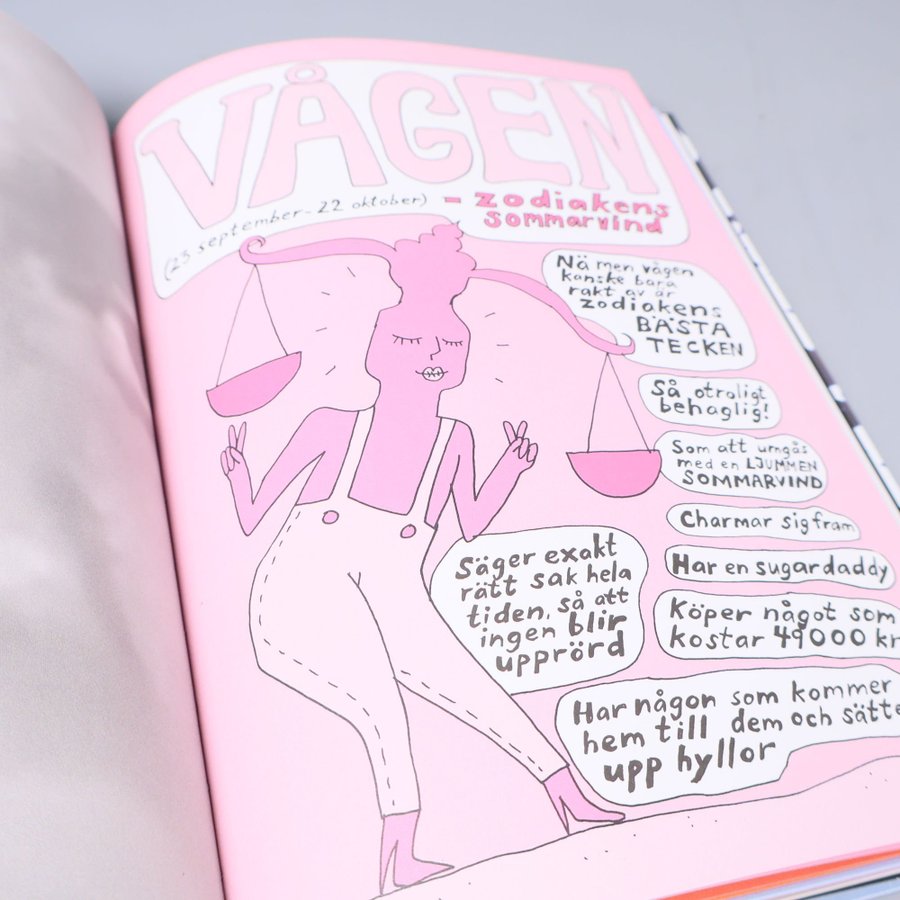 VÅGEN
(23 september - 22 oktober)
- zodiakens
sommarvind
Nä men vågen
kanske bara
rakt av är
zodiakens
BÄSTA
TECKEN
Så otroligt
behaglig!
Som att umgås
med en LJUMMEN
SOMMARVIND
Charmar sig fram
Har en sugardaddy
Säger exakt
rätt sak hela
tiden, så att
ingen blir
upprörd
Köper något som
kostar 49000 kr
Har någon som kommer
hem till dem och sätter
upp hyllor